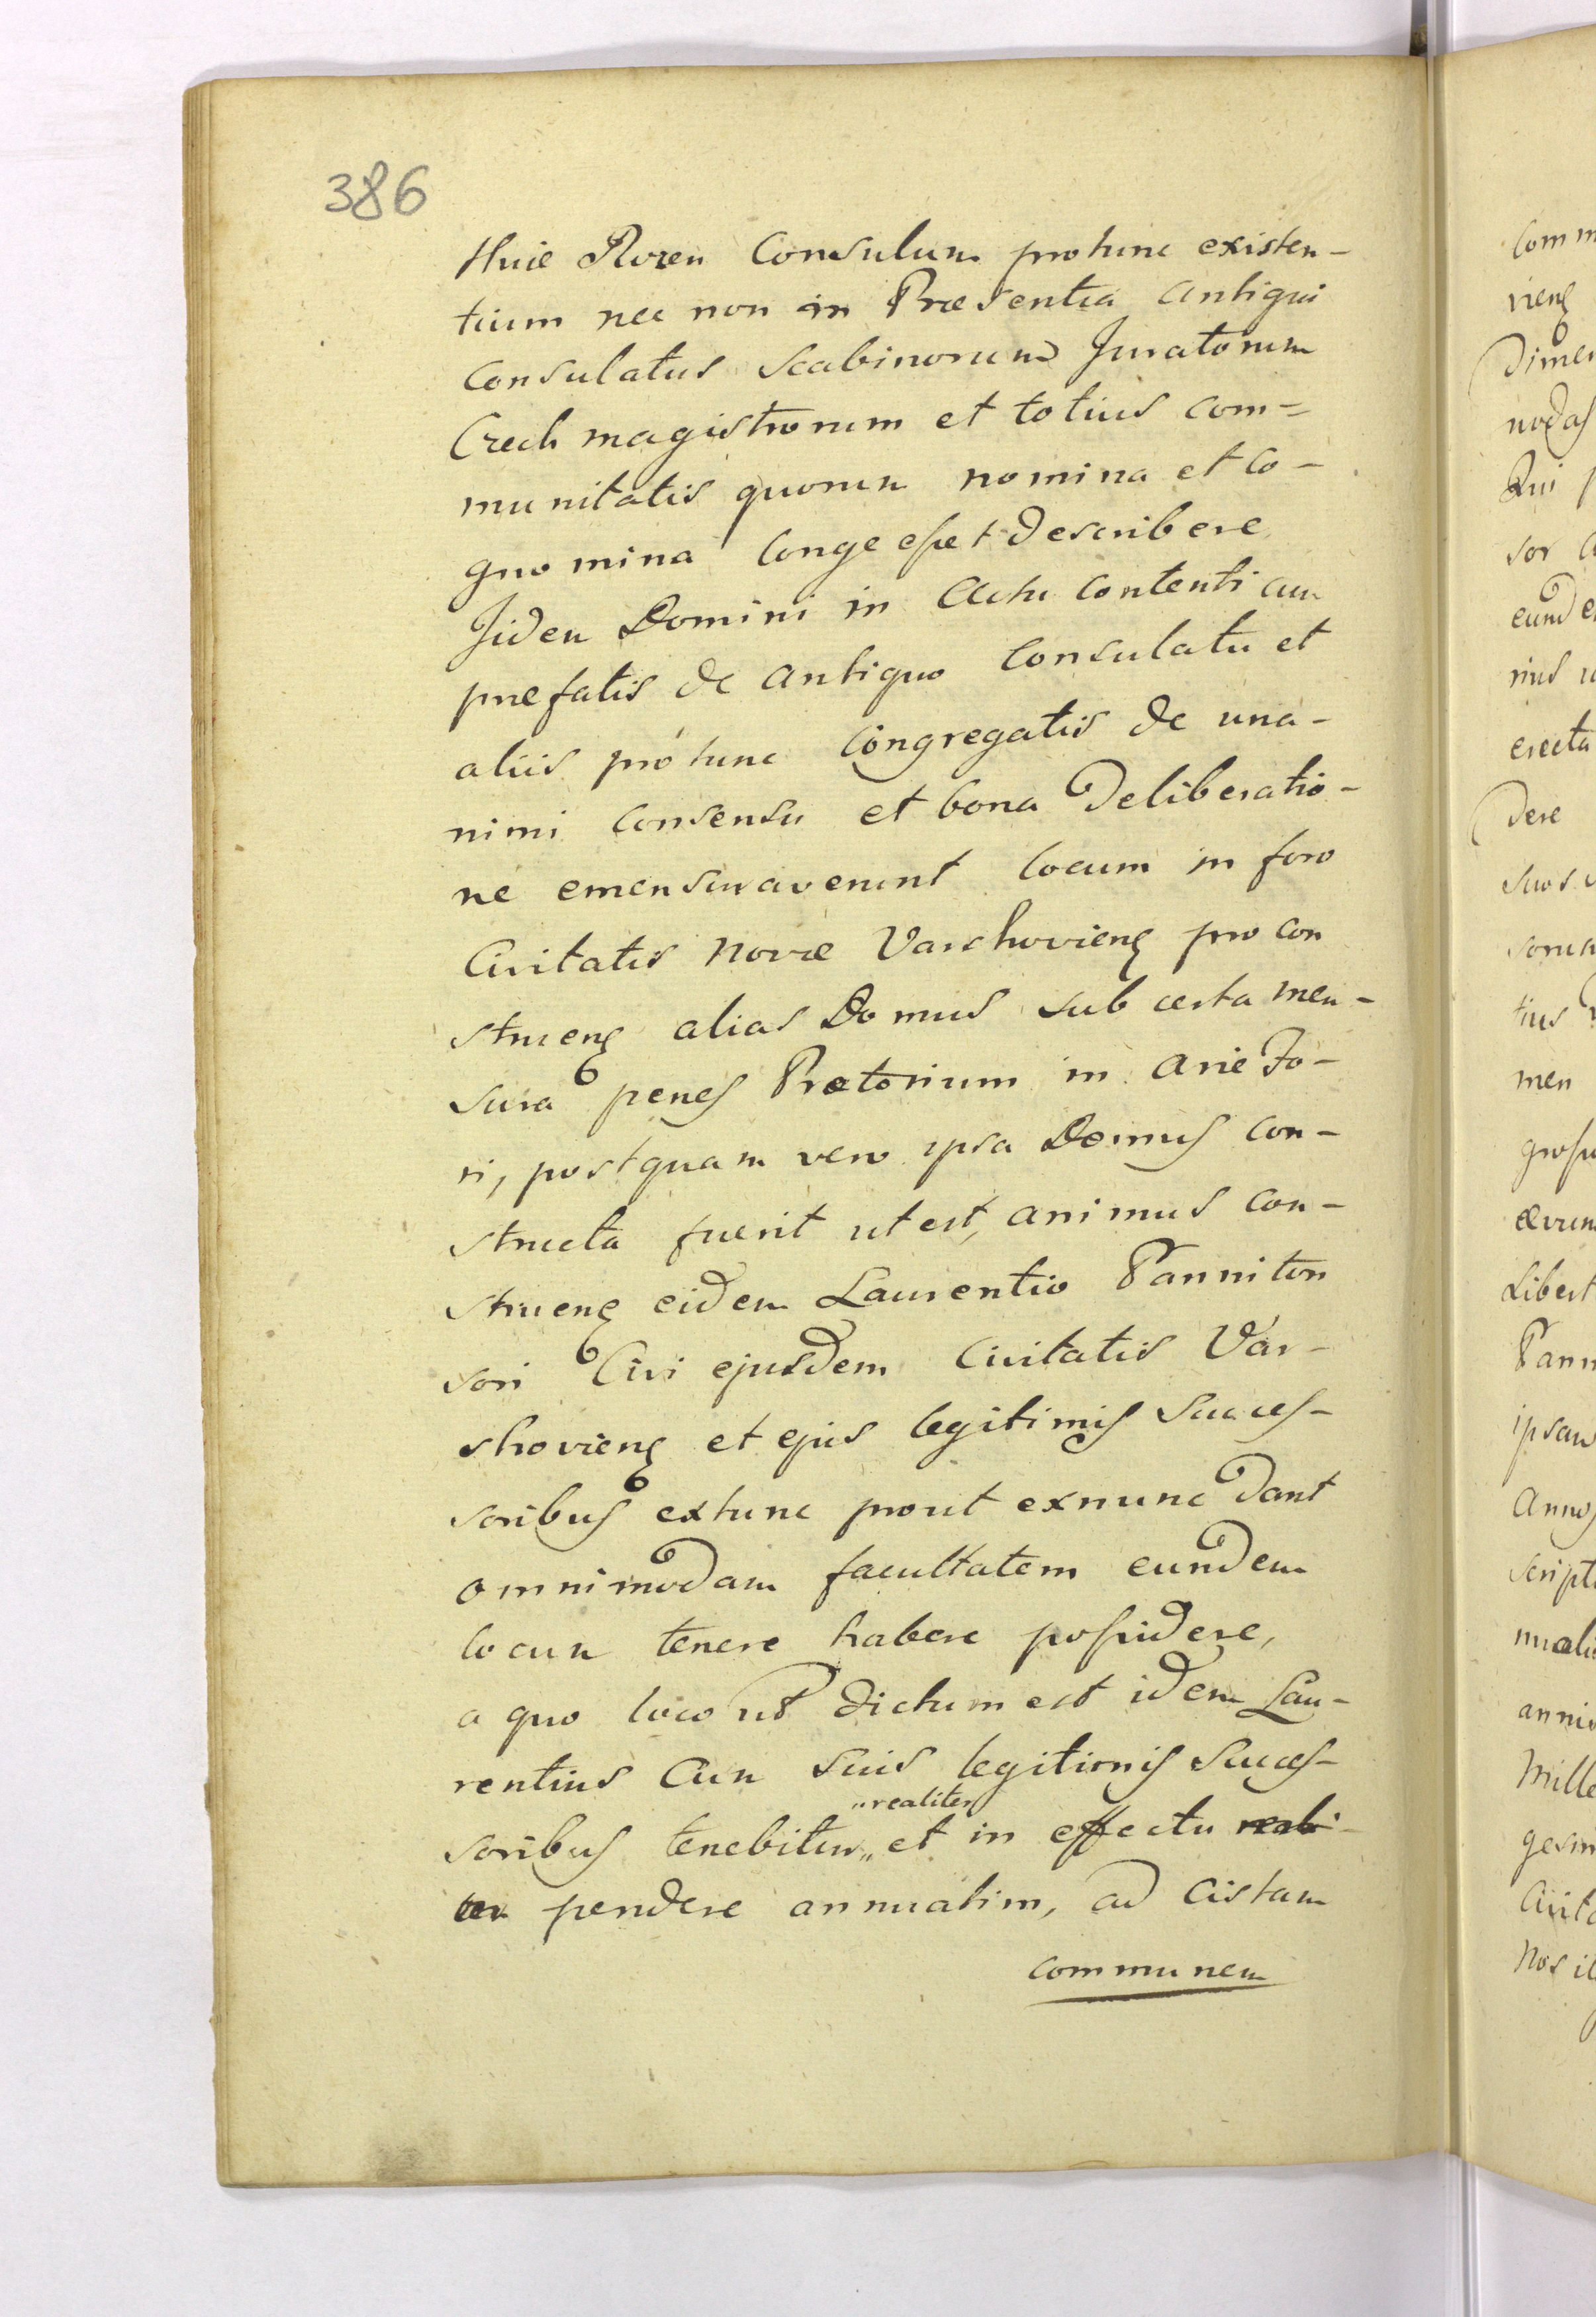 386
Huie Rozen Consulum protunc existen-
tium nec non in Præsentia antiqui
Consulatus Scabinorum Juratorum
Czech magistrorum et totius com=
munitatis quorum nomina et co-
gno mina longe eßet describere
Jidem Domini in Actu contenti cum
prefatis de antiquo Consulatu et
aliis pro tunc Congregatis de una-
nimi consensu et bona deliberatio-
ne emensuraverunt locum in foro
Civitatis Novæ Varschovieng pro con
strueng alias Domus sub certa men-
sura penes Prætorium in arie Fo-
ri, postquam vero ipsa Domus con-
structa fuerit ut est, animus con-
strueng eidem Laurentio Panniton
sori Civi ejusdem Civitatis Var-
shovieng et ejus legitimis Succes-
soribus extunc prout exnunc dant
omnimodam facultatem eundem
locum tenere habere poßidere,
a quo loco ut dictum est idem Lau-
rentius Cum suis legitimis Succes-
soribus tenebitur „ et in effectu reali-
„realiter
ter pendere annuatim, ad Cistam
communem
Comm
vieng
dimen
nodas
Qui p
sor
eunde
rius
erecta
dere
suos
tius
men
Libert
Pann
ipsam
Annos
script
nuali
anni
Mille
gesim
Civita
Nos